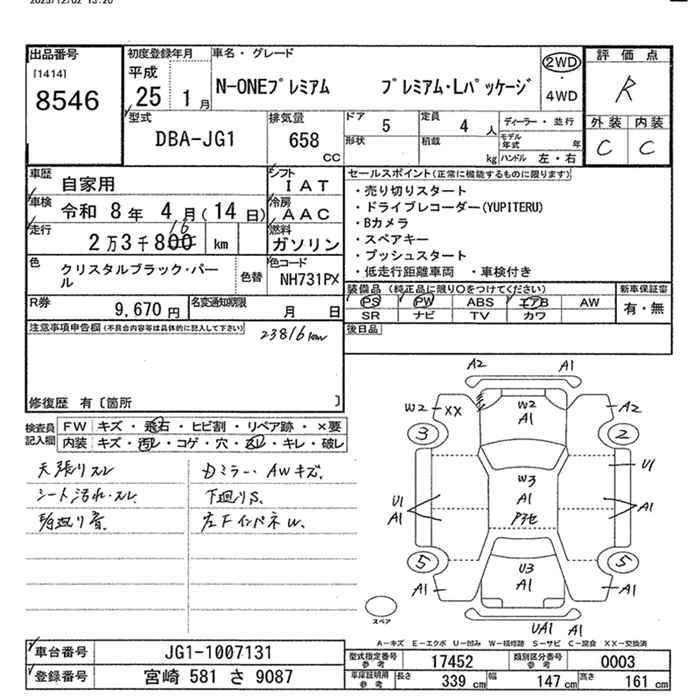 2025/12/02 13:20
出品番号 初度登録年月 車名・グレード 評価点
[1414] 平成 N-ONEプレミアム プレミアム・Lパッケージ 2WD R
8546 25 1月 4WD
外装 内装
型式 排気量 ドア 5 定員 4人 ディーラー・並行
DBA-JG1 658 CC 形状 積載 kg モデル年式 年 C C
ハンドル 左・右
車歴 自家用 シフト IAT セールスポイント(正常に機能するものに限ります)
車検 令和 8年 4月(14日) 冷房 AAC ・売り切りスタート
・ドライブレコーダー(YUPITERU)
走行 2万3千800 16 km 燃料 ガソリン ・Bカメラ
・スペアキー
色 クリスタルブラック・パール 色替 色コード NH731PX ・プッシュスタート
・低走行距離車両 ・車検付き
R券 9,670円 名変通知期限 月 日 装備品 (純正品に限り○をつけてください) 新車保証書
PS PW ABS エアB AW 有・無
SR ナビ TV カワ
注意事項申告欄(不具合内容等は具体的に記入して下さい) 23816km 後日品
修復歴 有〔箇所 〕
検査員記入欄 FW キズ・飛石・ヒビ割・リペア跡・×要
内装 キズ・汚レ・コゲ・穴・スレ・キレ・破レ
天張りスレ Dミラー・AWキズ.
シート汚れ・スレ. 下廻りS.
左Fインパネw.
A2 A1
W2 XX W2 A1 A2
3 2
W3 U1
U1 A1 A1
A1 Pアセ
5 5
U3
A1 A1 A1
UA1 A1
スペア
A－キズ E－エクボ U－凹み W－板修跡 S－サビ C－腐食 XX－交換済
車台番号 JG1-1007131 型式指定番号参考 17452 類別区分番号参考 0003
登録番号 宮崎 581 さ 9087 車庫証明用参考 長さ 339 cm 幅 147 cm 高さ 161 cm